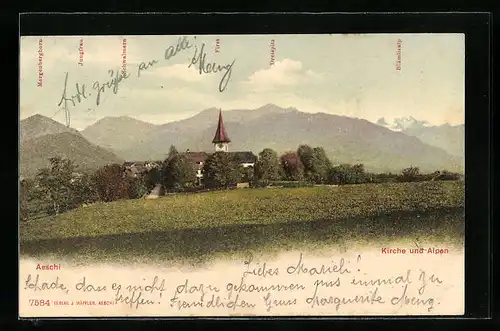 Morgenberghorn
Jungfrau
Schwalmern
First
Dreispitz
Blümlisalp
Frdl. Grüße an alle! Meng
Aeschi
Kirche und Alpen
Liebes Marieli!
Schade, dass es nicht dazu gekommen uns einmal zu
treffen! Freundlichen Gruss Marguerite Meng.
7584 VERLAG J. AESCHI